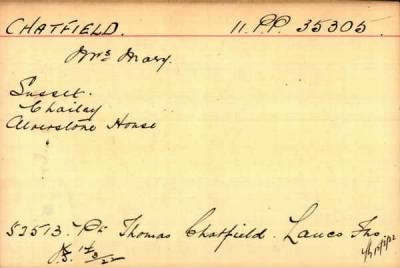 CHATFIELD. 11. P.P. 35305.
Mrs Mary.
Sussex.
Chailey
Alverstone House
52513. Pte Thomas Chatfield. Lancs Fus.